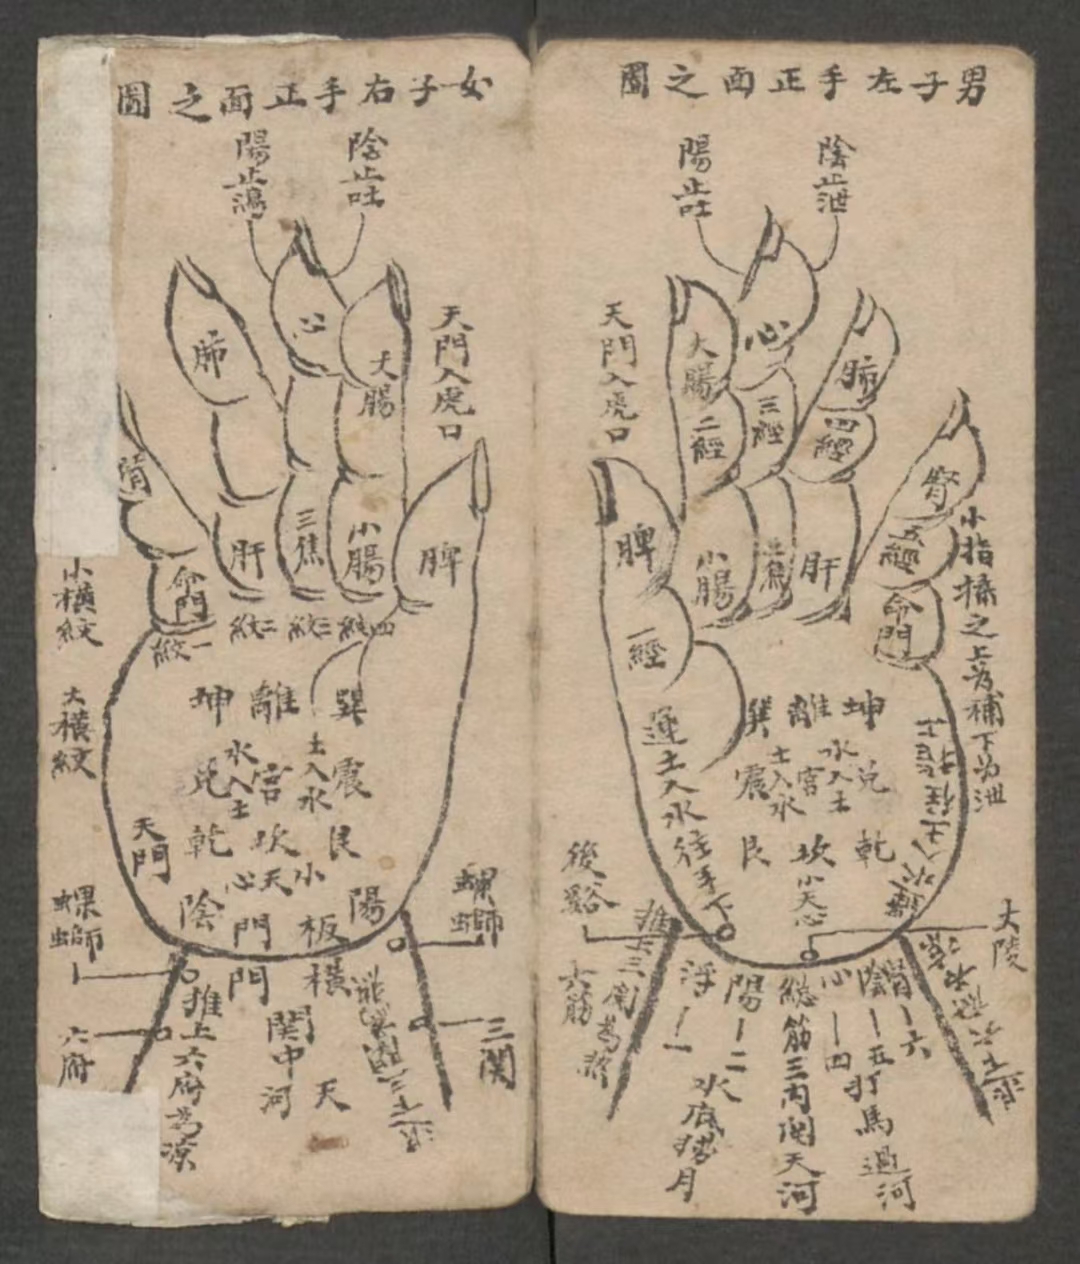 男子左手正面之圖
陰止泄
陽止吐
天門入虎口
心
大腸
肺
三經
二經
四經
腎
五經
命門
脾
一經
小腸
三焦
肝
小指搖之上為補下為泄
運土入水往手下
巽離坤
震宮兌
土入水
水入土
艮坎乾
小天心
後谿
大陵
推上三關為熱
六筋
浮一
陽二
總筋三
心四
陰五
腎六
水底撈月
內間天河
打馬過河
女子右手正面之圖
陰止吐
陽止瀉
天門入虎口
心
肺
大腸
腎
脾
小腸
三焦
肝
命門
紋一
紋二
紋三
紋四
小橫紋
大橫紋
坤離巽
兌宮震
水入土
土入水
乾坎艮
天門
小天心
陰
陽
板門
橫門
螺螄
螺螄
六府
三關
推上六府為涼
關中
天河